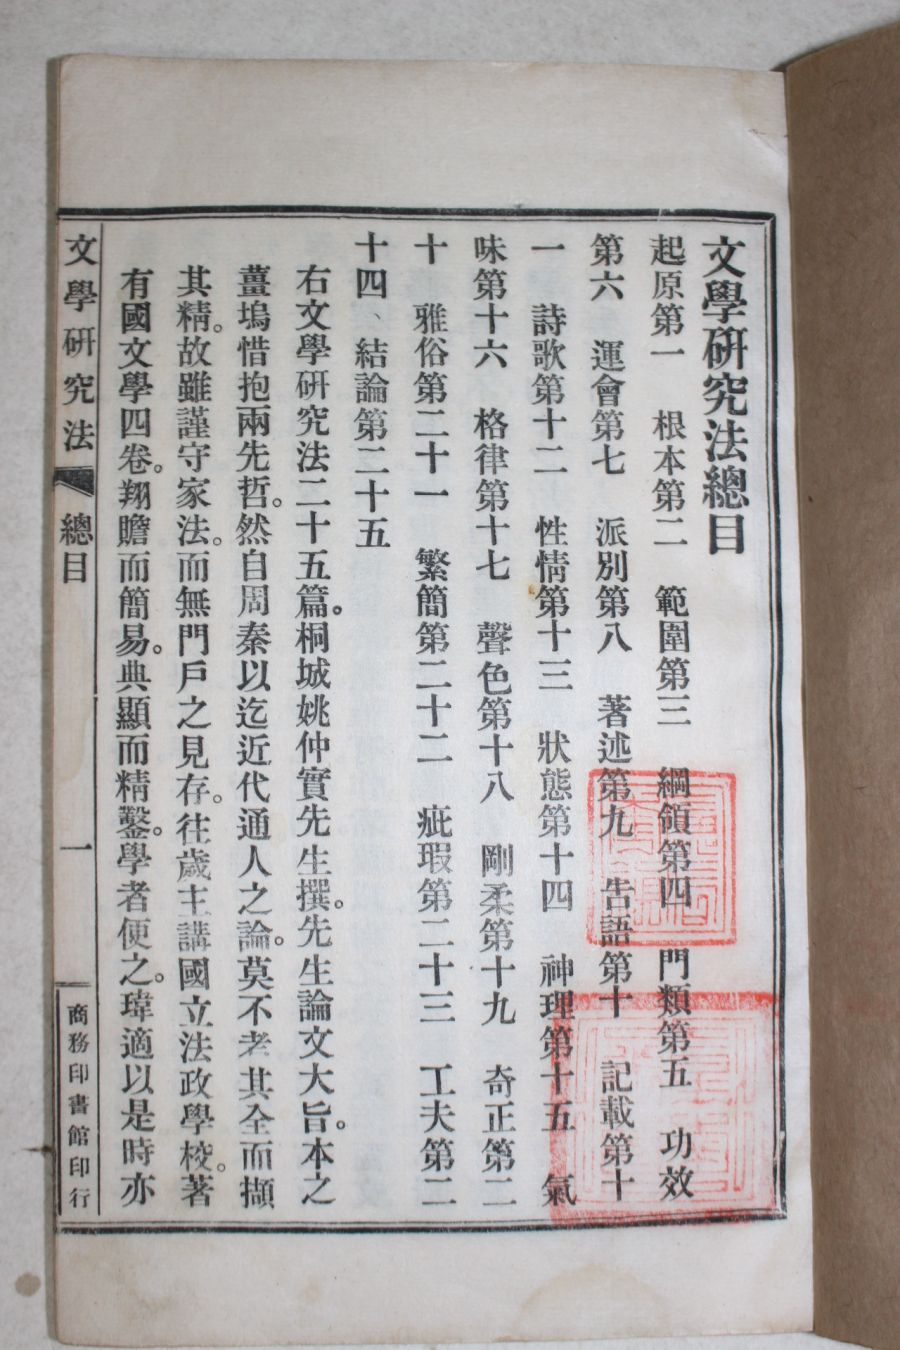 文學研究法總目
起原第一　根本第二　範圍第三　綱領第四　門類第五　功效
第六　運會第七　派別第八　著述第九　告語第十　記載第十
一　詩歌第十二　性情第十三　狀態第十四　神理第十五　氣
味第十六　格律第十七　聲色第十八　剛柔第十九　奇正第二
十　雅俗第二十一　繁簡第二十二　疵瑕第二十三　工夫第二
十四、結論第二十五
右文學研究法二十五篇。桐城姚仲實先生撰。先生論文大旨。本之
薑塢惜抱兩先哲。然自周秦以迄近代通人之論。莫不考其全而擷
其精。故雖謹守家法。而無門戶之見存。往歲主講國立法政學校。著
有國文學四卷。翔贍而簡易。典顯而精鑿。學者便之。瑋適以是時亦
文學研究法　總目　一　商務印書館印行